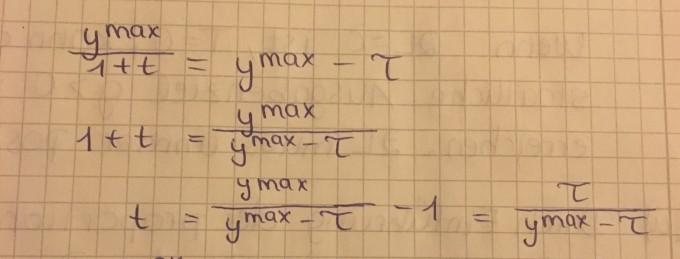 y^max / (1+t) = y^max − τ
1 + t = y^max / (y^max − τ)
t = y^max / (y^max − τ) − 1 = τ / (y^max − τ)